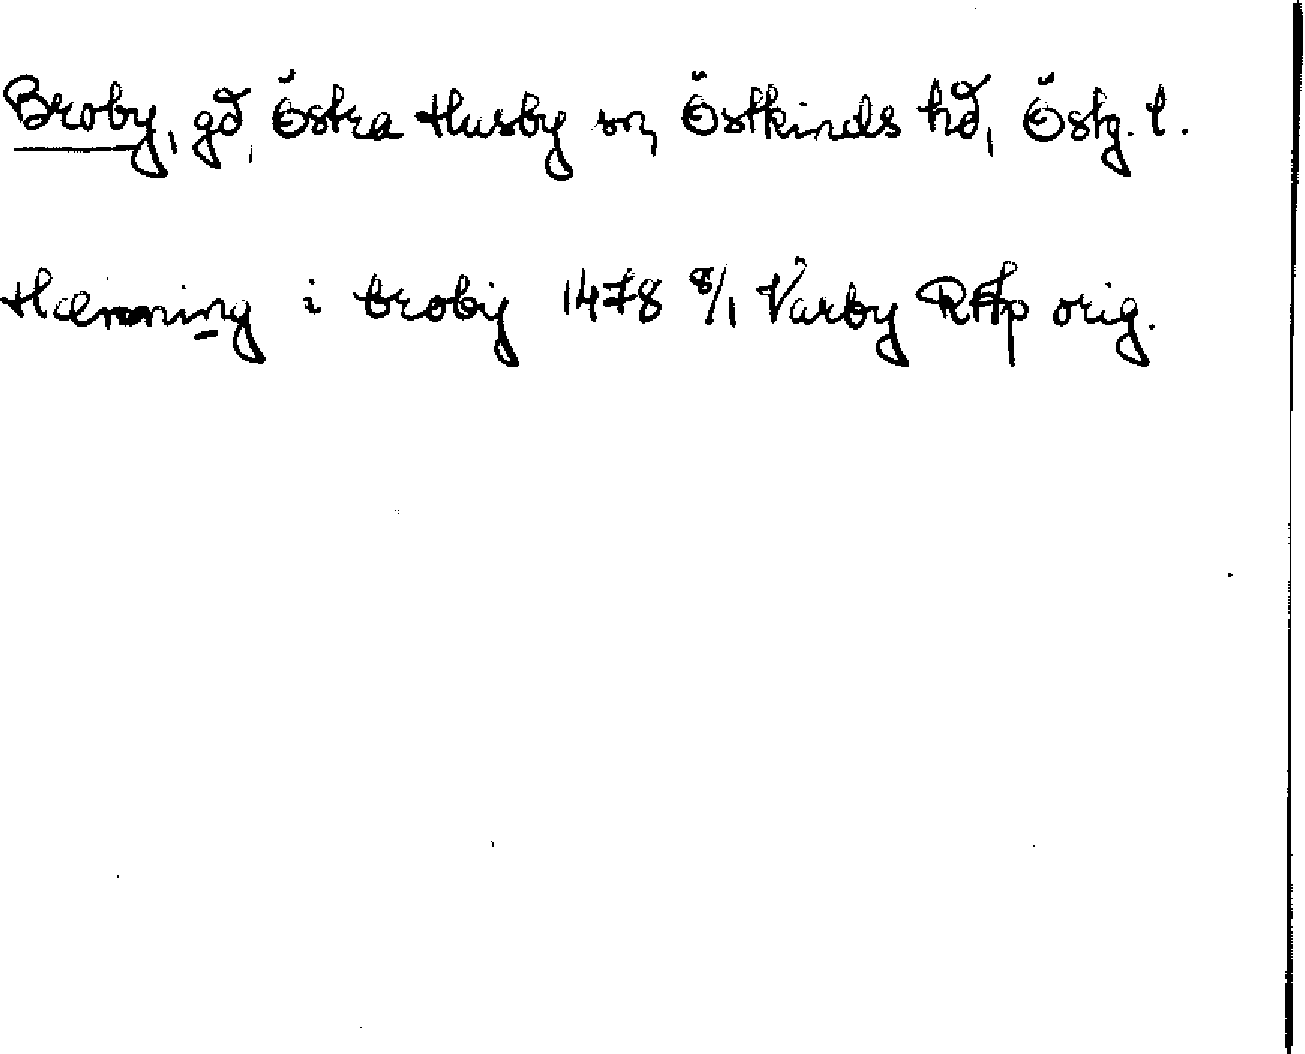 Broby, gd, Östra Husby sn, Östkinds hd, Östg. l.
Hæmming i broby 1478 8/1 Vårby RAp orig.